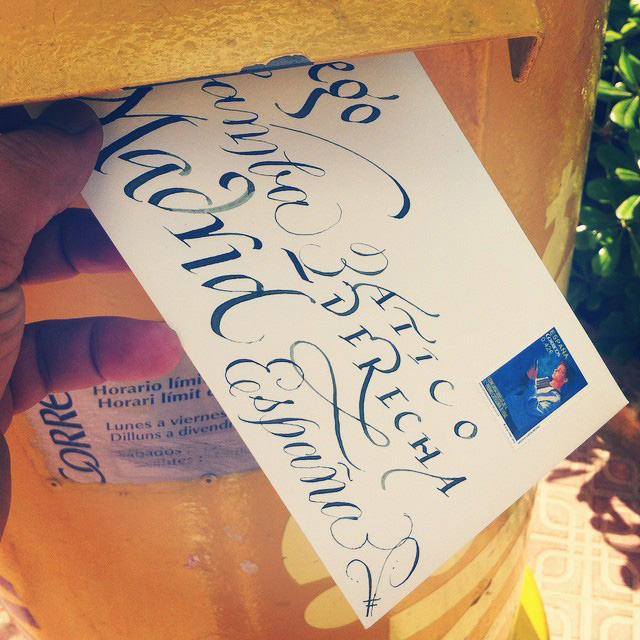 ego
amba 3 ATICO
DERECHA
Madrid
España
ESPAÑA
CORREOS
CORRE
Horario lími
Horari límit
Lunes a viernes
Dilluns a divend
Sábados